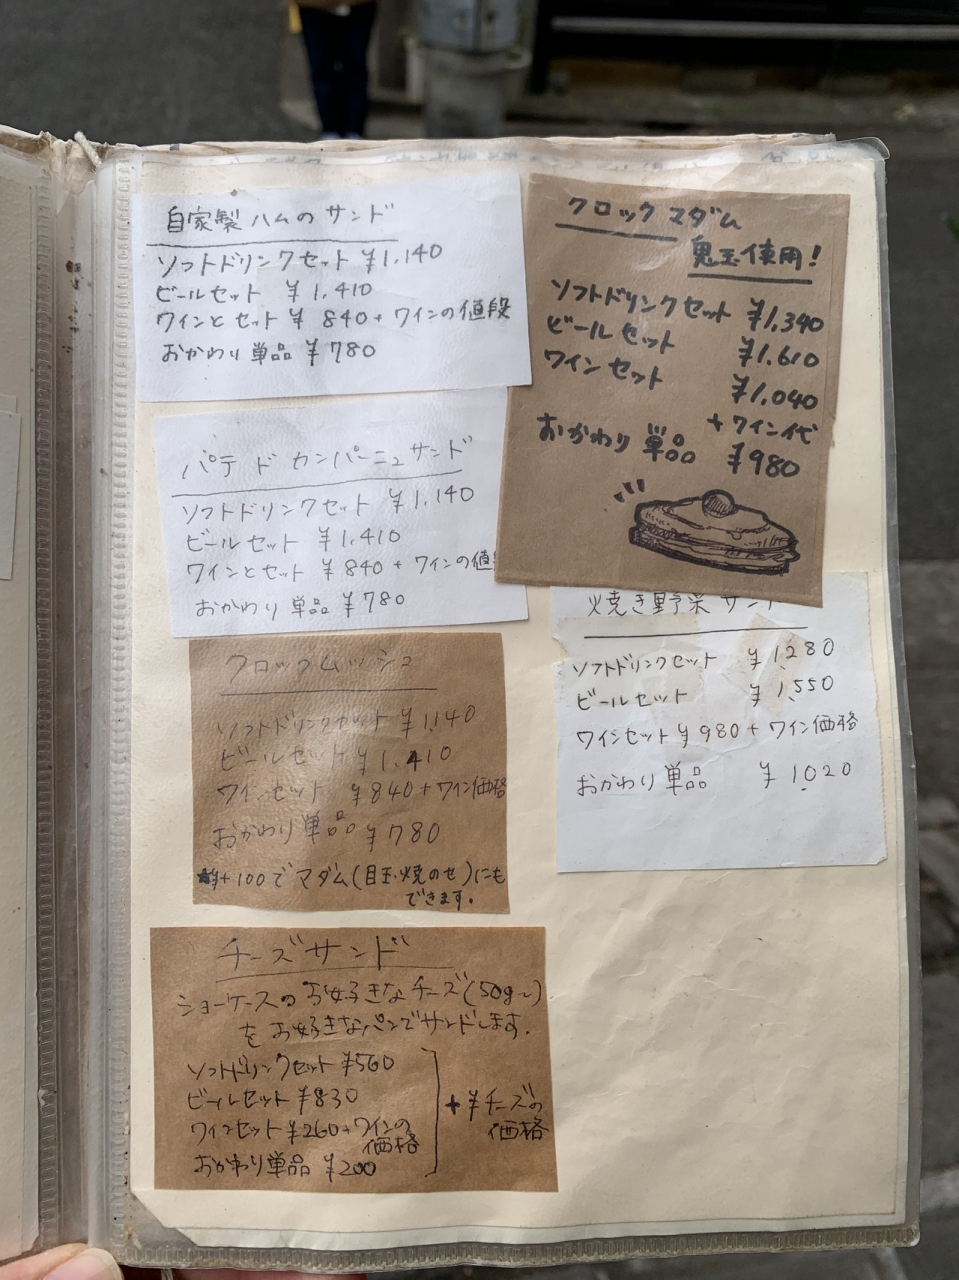 自家製ハムのサンド
ソフトドリンクセット ¥1,140
ビールセット ¥1,410
ワインとセット ¥840+ワインの値段
おかわり単品 ¥780
パテ ド カンパーニュサンド
ソフトドリンクセット ¥1,140
ビールセット ¥1,410
ワインとセット ¥840+ワインの値
おかわり単品 ¥780
クロックムッシュ
ソフトドリンクセット ¥1,140
ビールセット ¥1,410
ワインセット ¥840+ワイン価格
おかわり単品 ¥780
+100でマダム(目玉焼のせ)にも
できます。
チーズサンド
ショーケースのお好きなチーズ(50g〜)
をお好きなパンでサンドします.
ソフトドリンクセット ¥560
ビールセット ¥830
ワインセット ¥260+ワインの
価格
おかわり単品 ¥200
+¥チーズの
価格
クロックマダム
鬼玉使用!
ソフトドリンクセット ¥1,340
ビールセット ¥1,610
ワインセット ¥1,040
+ワイン代
おかわり単品 ¥980
焼き野菜サンド
ソフトドリンクセット ¥1,280
ビールセット ¥1,550
ワインセット ¥980+ワイン価格
おかわり単品 ¥1,020